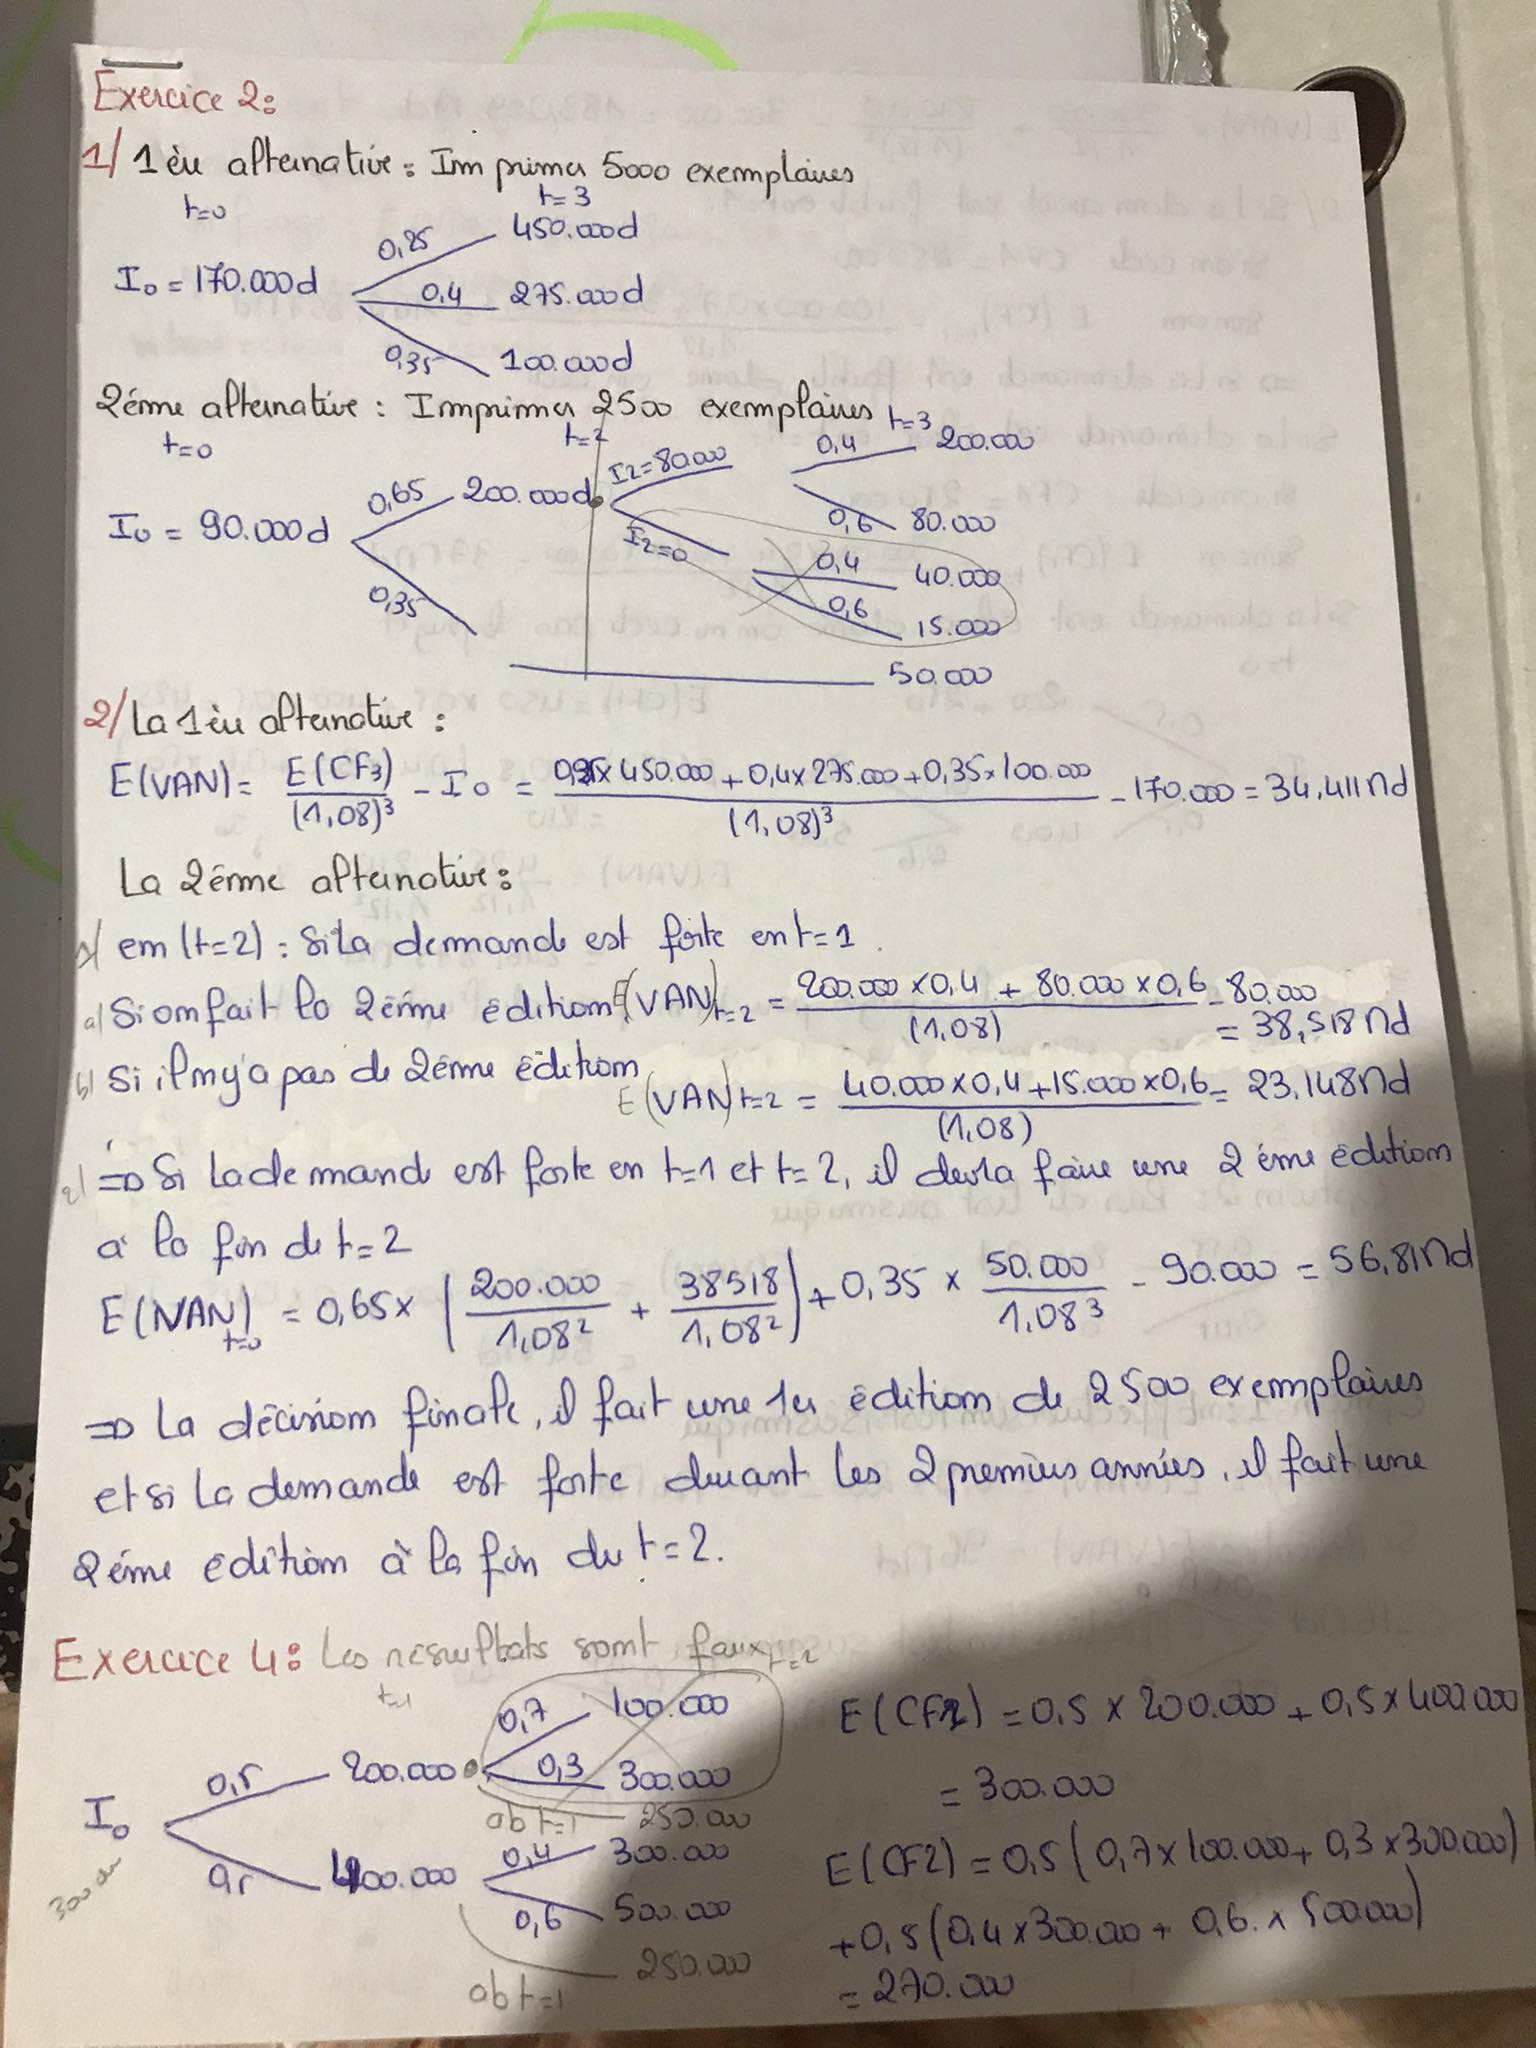 Exercice 2:
1/ 1ère alternative: Imprimer 5000 exemplaires
t=0 t=3
0,25 450.000d
I0 = 170.000d 0,4 275.000d
0,35 100.000d
2éme alternative: Imprimer 2500 exemplaires
t=0 t=2 t=3
0,65 200.000d I2=80.000 0,4 200.000
I0 = 90.000d 0,6 80.000
I2=0 0,4 40.000
0,35 0,6 15.000
50.000
2/ La 1ère alternative:
E(VAN) = E(CF3)/(1,08)³ - I0 = 0,25×450.000+0,4×275.000+0,35×100.000/(1,08)³ - 170.000 = 34,411Md
La 2éme alternative:
em (t=2): Si la demande est forte en t=1.
a) Si on fait la 2éme édition E(VAN)t=2 = 200.000×0,4 + 80.000×0,6/(1,08) - 80.000
= 38,518Md
b) Si il n'y a pas de 2éme édition
E(VAN)t=2 = 40.000×0,4+15.000×0,6/(1,08) = 23,148Md
⇒ Si la demande est forte en t=1 et t=2, il devra faire une 2éme édition
à la fin de t=2
E(VAN)t=0 = 0,65× (200.000/1,08² + 38518/1,08²) + 0,35 × 50.000/1,08³ - 90.000 = 56,81Md
⇒ La décision finale, il fait une 1er édition de 2500 exemplaires
et si la demande est forte durant les 2 premiers années, il fait une
2éme édition à la fin du t=2.
Exercice 4: Les résultats sont faux
t=1 t=2
0,7 100.000
0,5 200.000 0,3 300.000
ab t=1 250.000
I0
300.000
0,5 400.000 0,4 300.000
0,6 500.000
ab t=1 250.000
E(CF1) = 0,5 × 200.000 + 0,5×400.000
= 300.000
E(CF2) = 0,5(0,7×100.000+0,3×300.000)
+0,5(0,4×300.000 + 0,6.×500.000)
= 270.000